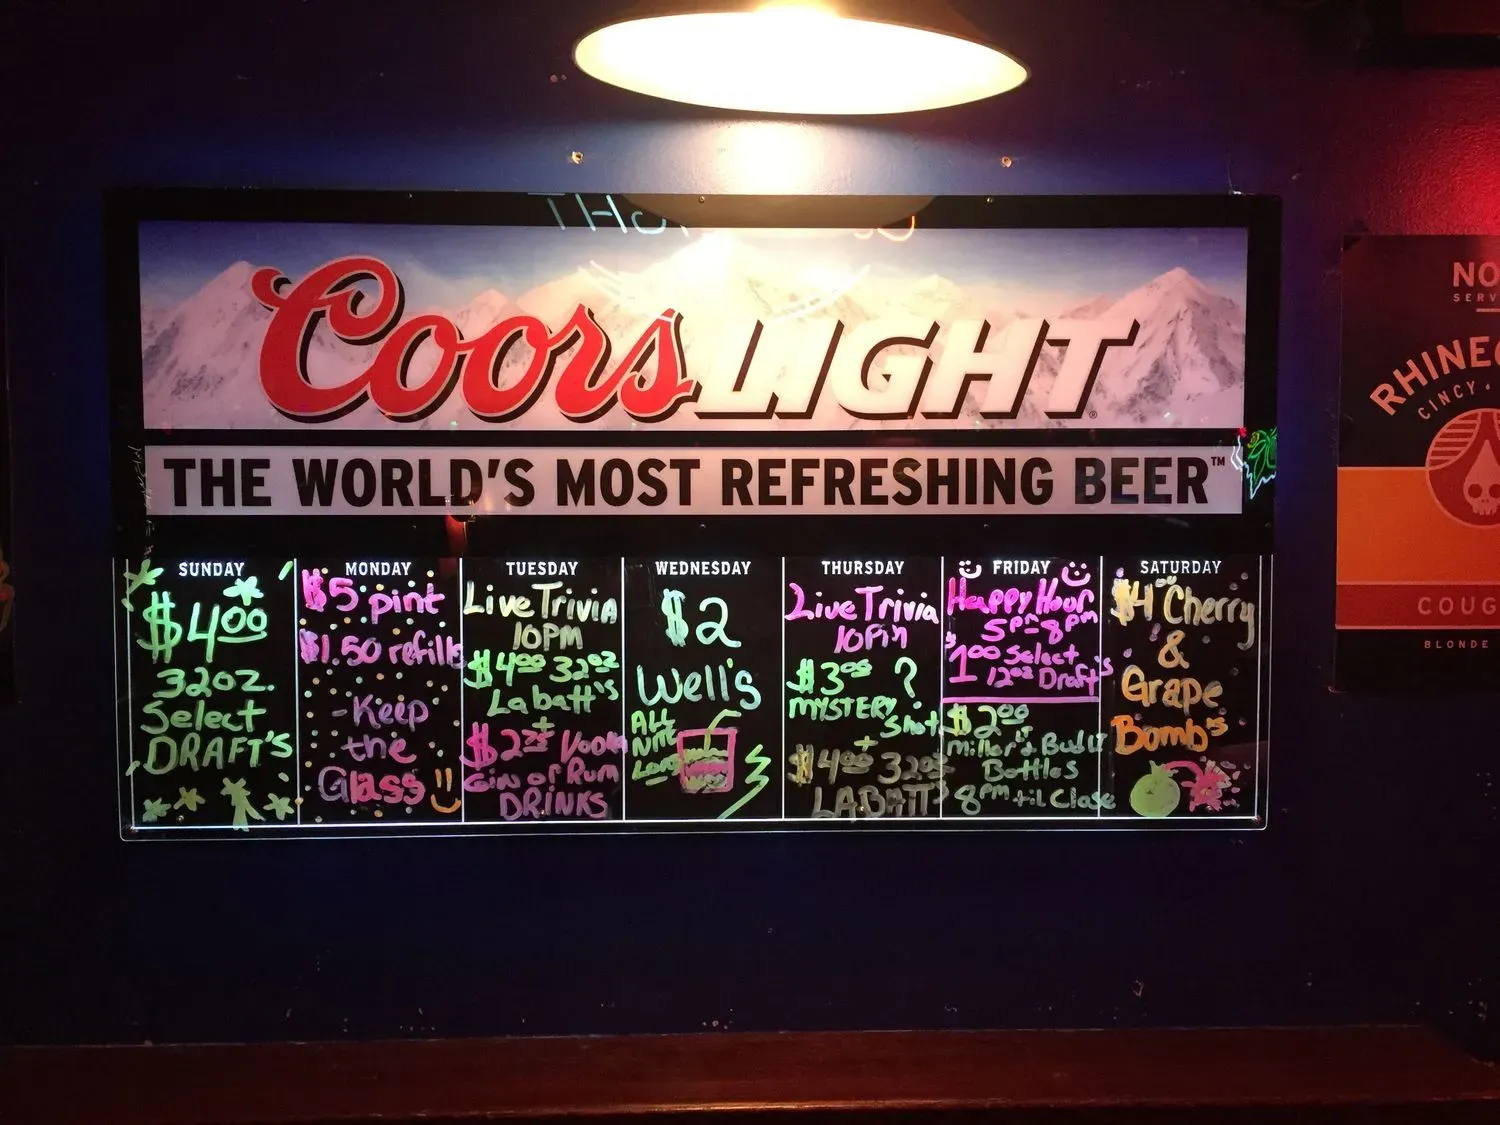 THO
Coors LIGHT
THE WORLD'S MOST REFRESHING BEER™
SUNDAY
$4.00
32oz.
Select
DRAFT'S
MONDAY
$5 pint
$1.50 refills
-Keep
the
Glass
TUESDAY
Live Trivia
10PM
$4.00 32oz
Labatt's
+
Vodka
Gin or Rum
DRINKS
WEDNESDAY
$2
Well's
ALL
NITE
LONG
THURSDAY
Live Trivia
10Pm
$3.00 ?
MYSTERY
Shot
+
$4.00 32oz
LABATT'S
FRIDAY
Happy Hour
5pm-8pm
$1.00 Select
12oz Draft's
$2.00
Miller Lt & Bud LT
Bottles
8pm til Close
SATURDAY
$4.00 Cherry
&
Grape
Bomb's
NO
SERV
RHINEG
CINCY
COUG
BLONDE